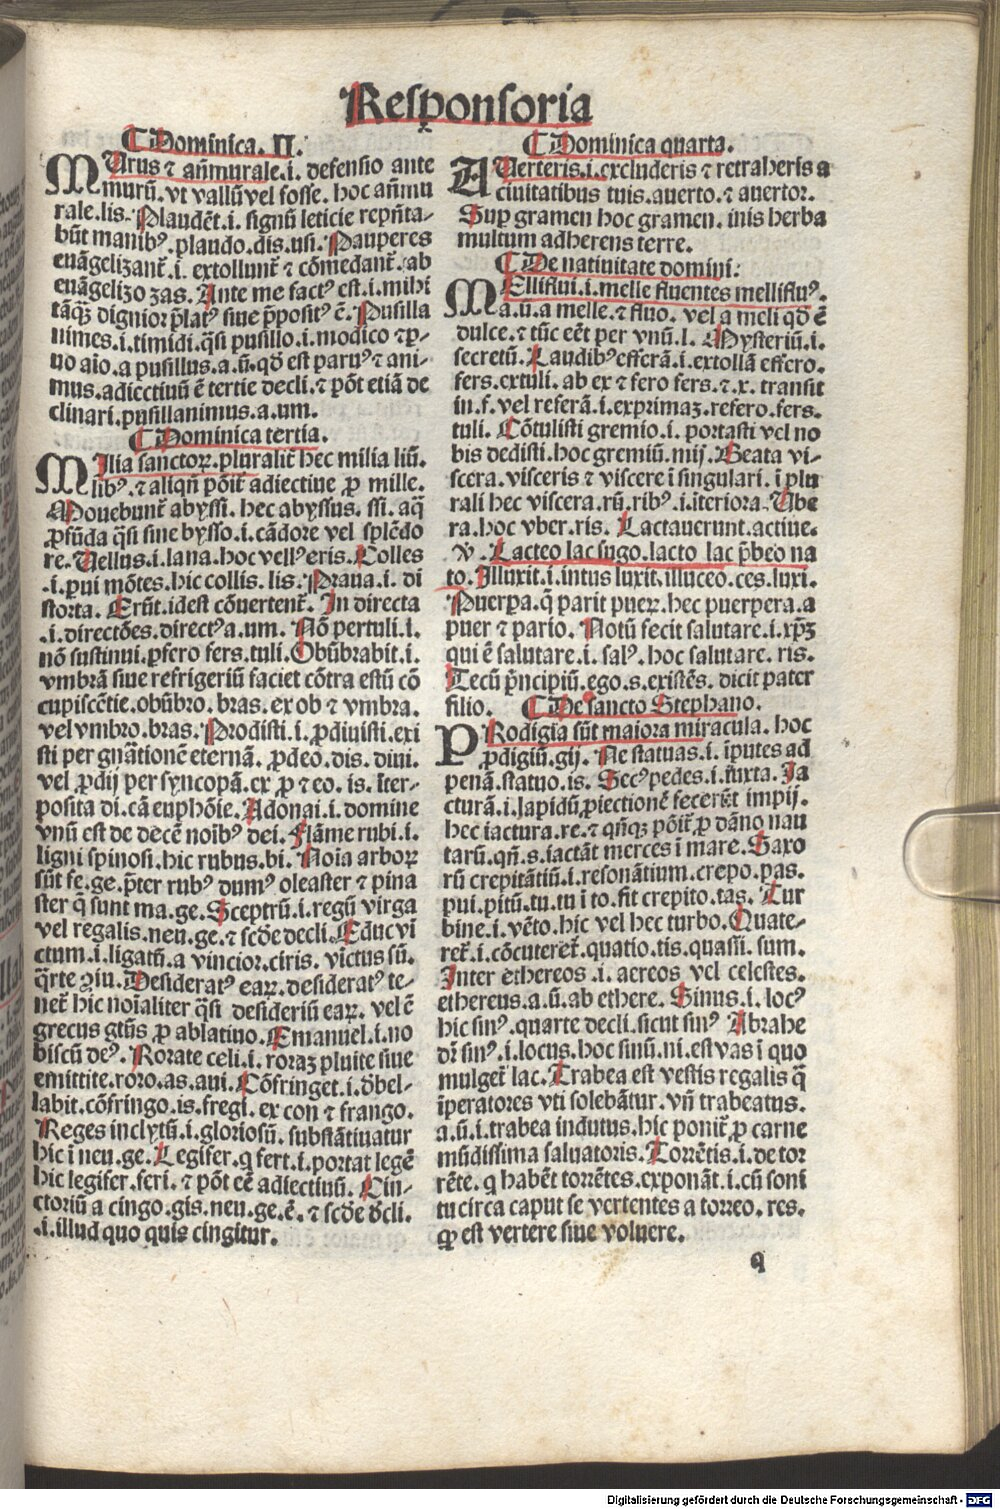 Responsoria
⸿ Dominica. II.
MUrus ⁊ an̄murale.i. defensio ante
murū. vt vallū vel fosse. hoc an̄mu
rale.lis. Plaudēt.i. signū leticie repn̄ta-
būt manibꝰ.plaudo.dis.usi. Pauperes
euāgelizant̄.i. extollunt̄ ⁊ cōmedant̄.ab
euāgelizo zas. Ante me factꝰ est.i.mihi
tāqꝫ dignior p̄latꝰ siue p̄positꝰ ē. Pusilla
nimes.i.timidi.q̄si pusillo.i.modico ⁊ p-
uo aīo.a pusillus.a.ū.qd̄ est paruꝰ ⁊ ani-
mus.adiectiuū ē tertie decli.⁊ pōt etiā de
clinari.pusillanimus.a.um.
⸿ Dominica tertia.
MIlia sanctoꝝ.pluralit̄ hec milia liū.
libꝰ.⁊ aliqn̄ pōit̄ adiectiue ꝓ mille.
Mouebunt̄ abyssi. hec abyssus. ssi. aq̄
ꝓfūda q̄si sine bysso.i.cādore vel splēdo
re. Uellus.i.lana.hoc vellꝰ eris. Colles
.i.pui mōtes.hic collis.lis. Praua.i. di
storta. Erūt.idest cōuertent̄. In directa
.i.directōes.directꝰ a.um. Nō pertuli.i.
nō sustinui.ꝑfero fers.tuli. Obūbrabit.i.
vmbrā siue refrigeriū faciet cōtra estū cō
cupiscētie.obūbro. bras. ex ob ⁊ vmbra.
vel vmbro.bras. Prodisti.i.ꝓdiuisti.exi
sti per gn̄ationē eternā. ꝓdeo.dis. diui.
vel ꝓdij per syncopā.ex ꝓ ⁊ eo. is. īter-
posita di.cā euphōie. Adonai.i.domine
vnū est de decē noībꝰ dei. Flāme rubi.i.
ligni spinosi.hic rubus.bi. Noīa arboꝝ
sūt fe.ge.p̄ter rubꝰ dumꝰ oleaster ⁊ pina
ster q̄ sunt ma.ge. Sceptrū.i.regū virga
vel regalis.neu.ge.⁊ scd̄e decli. Educ vī
ctum.i.ligatū.a vincior.ciris. victus sū.
q̄rte ɔiu. Desideratꝰ eaꝝ.desideratꝰ te-
net̄ hic noīaliter q̄si desideriū eaꝝ. vel ē
grecus gtūs ꝓ ablatiuo. Emanuel.i.no
biscū deꝰ. Rorate celi.i.roraꝫ pluite siue
emittite.roro.as.aui. Cōfringet.i.d̄bel-
labit.cōfringo.is.fregi.ex con ⁊ frango.
Reges inclytū.i.gloriosū. substātiuatur
hic ī neu.ge. Legifer.q fert.i.portat legē
hic legifer.feri.⁊ pōt eē adiectiuū. Cin-
ctoriū a cingo.gis.neu.ge.ē.⁊ scd̄e d̄cli.
.i.illud quo quis cingitur.
⸿ Dominica quarta.
AUerteris.i.excluderis ⁊ retraheris a
ciuitatibus tuis.auerto.⁊ auertor.
Suꝑ gramen hoc gramen.inis herba
multum adherens terre.
⸿ De natiuitate domini.
MEllifiui.i.melle fluentes melliflu⁹.
a.ū.a melle.⁊ fluo. vel a meli qd̄ ē
dulce.⁊ tūc eēt per vnū.l. Mysteriū.i.
secretū. Laudibꝰ efferā.i.extollā effero.
fers.extuli. ab ex ⁊ fero fers.⁊.x. transit
in.f.vel referā.i.exprimaꝫ.refero.fers.
tuli. Cōtulisti gremio.i. portasti vel no
bis dedisti.hoc gremiū.mij. Beata vi-
scera. visceris ⁊ viscere ī singulari. ī plu
rali hec viscera.rū.ribꝰ.i.īteriora. Ube
ra.hoc vber.ris. Lactauerunt.actiue.
℣. Lacteo lac sugo.lacto lac p̄beo na
to. Illuxit.i.intus luxit.illuceo.ces.luxi.
Puerpa.q̄ parit pueꝝ.hec puerpera.a
puer ⁊ pario. Notū fecit salutare.i.xp̄ꝫ
qui ē salutare.i.salꝰ.hoc salutare. ris.
Tecū p̄ncipiū.ego.s.existēs. dicit pater
filio. ⸿ De sancto Stephano.
PRodigia sūt maiora miracula. hoc
ꝓdigiū.gij. Ne statuas.i. īputes ad
penā.statuo.is. Secꝰ pedes.i.iuxta. Ia
cturā.i.lapidū ꝓiectionē fecerūt impij.
hec iactura.re.⁊ qn̄qꝫ pōit̄ ꝓ dāno nau
tarū.qn̄.s.iactāt merces ī mare. Saxo
rū crepitātiū.i.resonātium.crepo.pas.
pui.pitū.tu.tu ī to.fit crepito.tas. Tur
bine.i.vēto.hic vel hec turbo. Quate-
ret̄.i.cōcuteret̄.quatio.tis.quassi. sum.
Inter ethereos .i. aereos vel celestes.
ethereus.a.ū.ab ethere. Sinus.i. locꝰ
hic sinꝰ.quarte decli.sicut sinꝰ Abrahe
dr̄ sinꝰ.i.locus.hoc sinū.ni.est vas ī quo
mulget̄ lac. Trabea est vestis regalis q̄
īperatores vti solebātur. vn̄ trabeatus.
a.ū.i.trabea indutus.hic ponit̄ ꝓ carne
mūdissima saluatoris. Torrētis.i.de tor
rēte. q habēt torrētes.exponāt.i.cū soni
tu circa caput se vertentes a torreo. res.
qꝫ est vertere siue voluere.
q
Digitalisierung gefördert durch die Deutsche Forschungsgemeinschaft - DFG